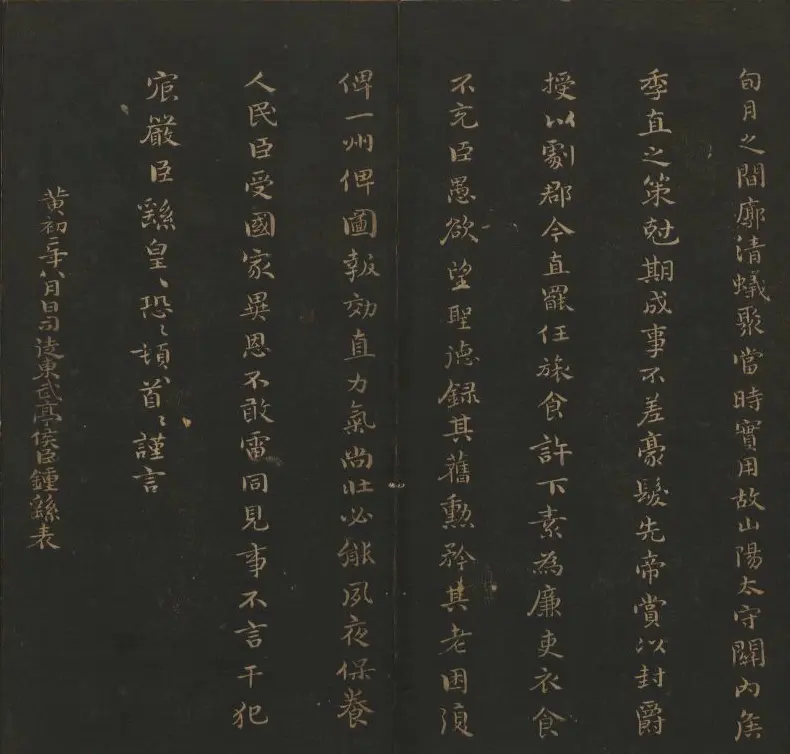 旬月之間廓清蟻聚當時實用故山陽太守關內侯
季直之策尅期成事不差豪髮先帝賞以封爵
授以劇郡今直罷任旅食許下素為廉吏衣食
不充臣愚欲望聖德錄其舊勳矜其老困復
俾一州俾圖報効直力氣尚壯必能夙夜保養
人民臣受國家異恩不敢雷同見事不言干犯
宸嚴臣繇皇〻恐〻頓首〻謹言
黃初二年八月日司徒東武亭侯臣鍾繇表